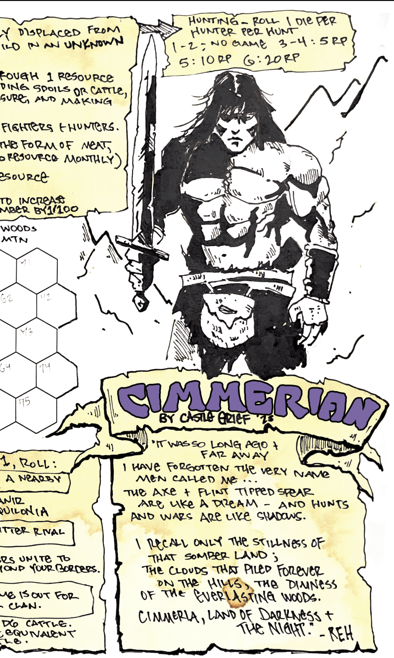 Y DISPLACED FROM
ILD IN AN UNKNOWN
OUGH 1 RESOURCE
DING SPOILS OR CATTLE,
SURE, AND MAKING
FIGHTERS + HUNTERS.
THE FORM OF MEAT,
RESOURCE MONTHLY)
ESOURCE
TO INCREASE
MBER BY 1/100
WOODS
MTN
HUNTING - ROLL 1 DIE PER
HUNTER PER HUNT
1-2; NO GAME 3-4: 5 RP
5: 10 RP 6: 20 RP
CIMMERIAN
BY CASTLE GRIEF '23
"IT WAS SO LONG AGO +
FAR AWAY
I HAVE FORGOTTEN THE VERY NAME
MEN CALLED ME ...
THE AXE + FLINT TIPPED SPEAR
ARE LIKE A DREAM - AND HUNTS
AND WARS ARE LIKE SHADOWS.
I RECALL ONLY THE STILLNESS OF
THAT SOMBER LAND;
THE CLOUDS THAT PILED FOREVER
ON THE HILLS, THE DIMNESS
OF THE EVERLASTING WOODS.
CIMMERIA, LAND OF DARKNESS +
THE NIGHT." - REH
1, ROLL:
A NEARBY
ANIR
QUILONIA
ITTER RIVAL
ERS UNITE TO
YOND YOUR BORDERS.
ME IS OUT FOR
CLAN.
D6 CATTLE.
EQUIVALENT
TLE.